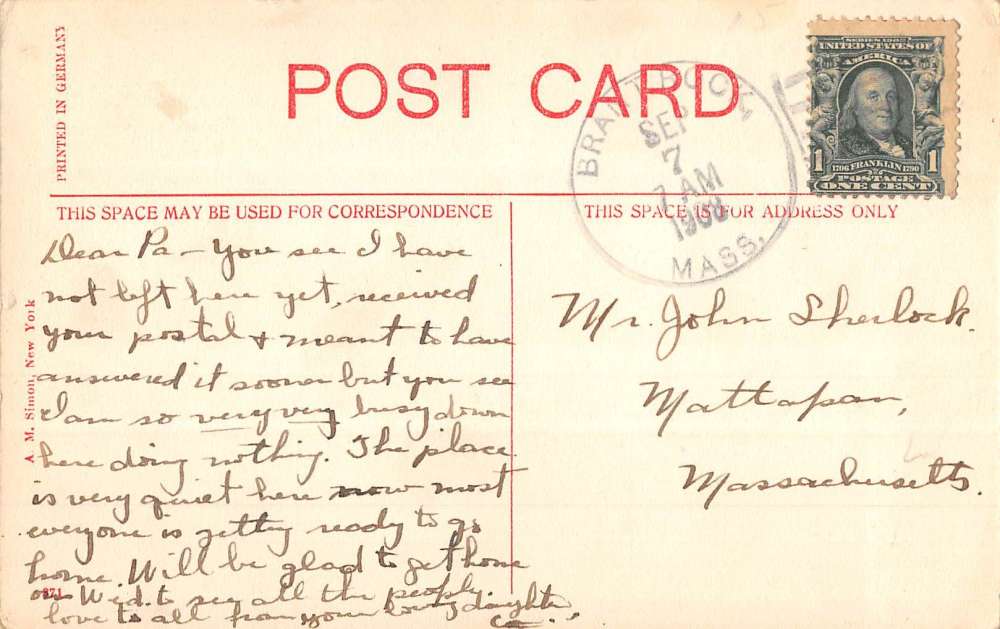 PRINTED IN GERMANY
POST CARD
BRANT ROCK
SEP
7
7 AM
1908
MASS.
SERIES 1902
UNITED STATES OF
AMERICA
1 1706 FRANKLIN 1790 1
POSTAGE
ONE CENT
THIS SPACE MAY BE USED FOR CORRESPONDENCE
THIS SPACE IS FOR ADDRESS ONLY
A. M. Simon, New York
Dear Pa - You see I have
not left here yet, received
your postal & meant to have
answered it sooner but you see
I am so very very busy down
here doing nothing. The place
is very quiet here now most
everyone is getting ready to go
home. Will be glad to get home
on Wed. to see all the people.
love to all from your loving daughter
871
Mr. John Sherlock.
Mattapan,
Massachusetts.